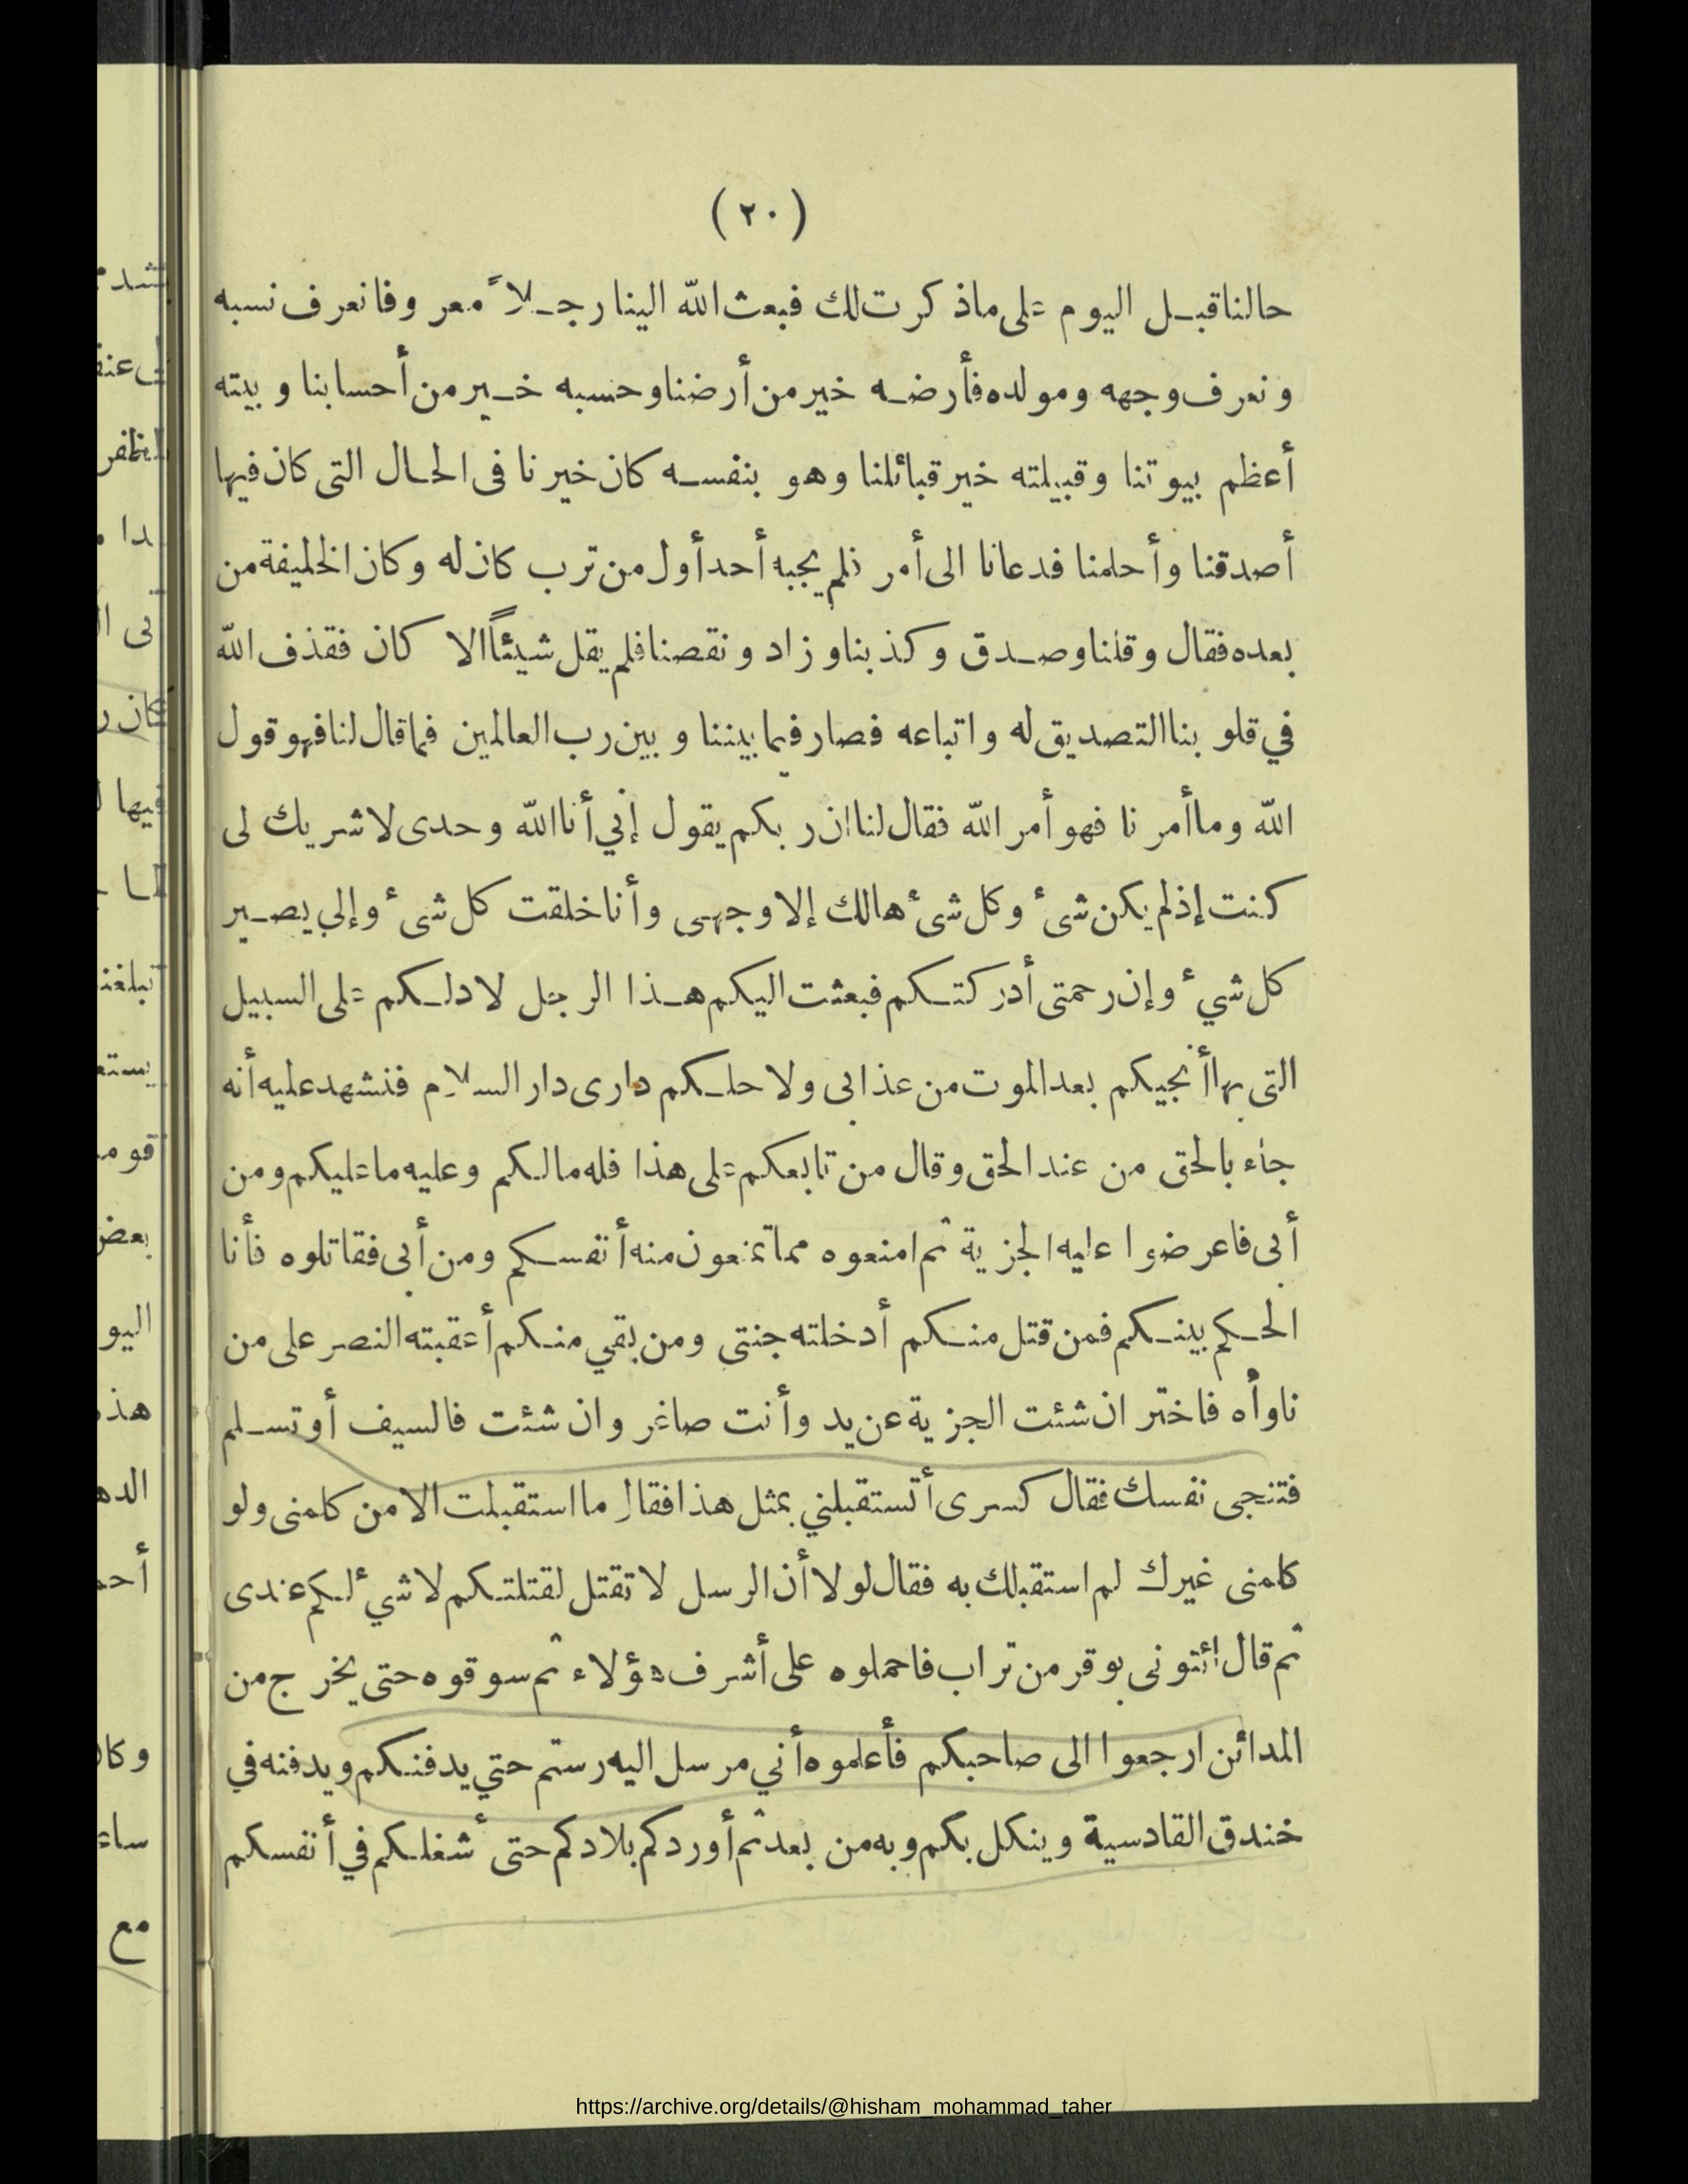 (٢٠)
حالنا قبل اليوم على ما ذكرت لك فبعث الله الينا رجلاً معروفا نعرف نسبه
ونعرف وجهه ومولده فأرضه خير من أرضنا وحسبه خير من أحسابنا وبيته
أعظم بيوتنا وقبيلته خير قبائلنا وهو بنفسه كان خيرنا فى الحال التى كان فيها
أصدقنا وأحلمنا فدعانا الى أمر فلم يجبه أحد أول من ترب كان له وكان الخليفة من
بعده فقال وقلنا وصدق وكذبنا وزاد ونقصنا فلم يقل شيئاً الا كان فقذف الله
في قلوبنا التصديق له واتباعه فصار فيما بيننا وبين رب العالمين فما قال لنا فهو قول
الله وما أمرنا فهو أمر الله فقال لنا ان ربكم يقول إني أنا الله وحدى لا شريك لى
كنت إذ لم يكن شىء وكل شىء هالك إلا وجهى وأنا خلقت كل شىء وإلي يصير
كل شيء وإن رحمتى أدركتكم فبعثت اليكم هذا الرجل لادلكم على السبيل
التى بها أنجيكم بعد الموت من عذابى ولاحلكم دارى دار السلام فنشهد عليه أنه
جاء بالحق من عند الحق وقال من تابعكم على هذا فله مالكم وعليه ما عليكم ومن
أبى فاعرضوا عليه الجزية ثم امنعوه مما تمنعون منه أنفسكم ومن أبى فقاتلوه فأنا
الحكم بينكم فمن قتل منكم أدخلته جنتى ومن بقي منكم أعقبته النصر على من
ناوأه فاختر ان شئت الجزية عن يد وأنت صاغر وان شئت فالسيف أو تسلم
فتنجى نفسك فقال كسرى أتستقبلني بمثل هذا فقال ما استقبلت الا من كلمنى ولو
كلمنى غيرك لم استقبلك به فقال لولا أن الرسل لا تقتل لقتلتكم لا شيء لكم عندى
ثم قال ائتونى بوقر من تراب فاحملوه على أشرف هؤلاء ثم سوقوه حتى يخرج من
المدائن ارجعوا الى صاحبكم فأعلموه أني مرسل اليه رستم حتي يدفنكم ويدفنه في
خندق القادسية وينكل بكم وبه من بعد ثم أوردكم بلادكم حتى أشغلكم في أنفسكم
https://archive.org/details/@hisham_mohammad_taher